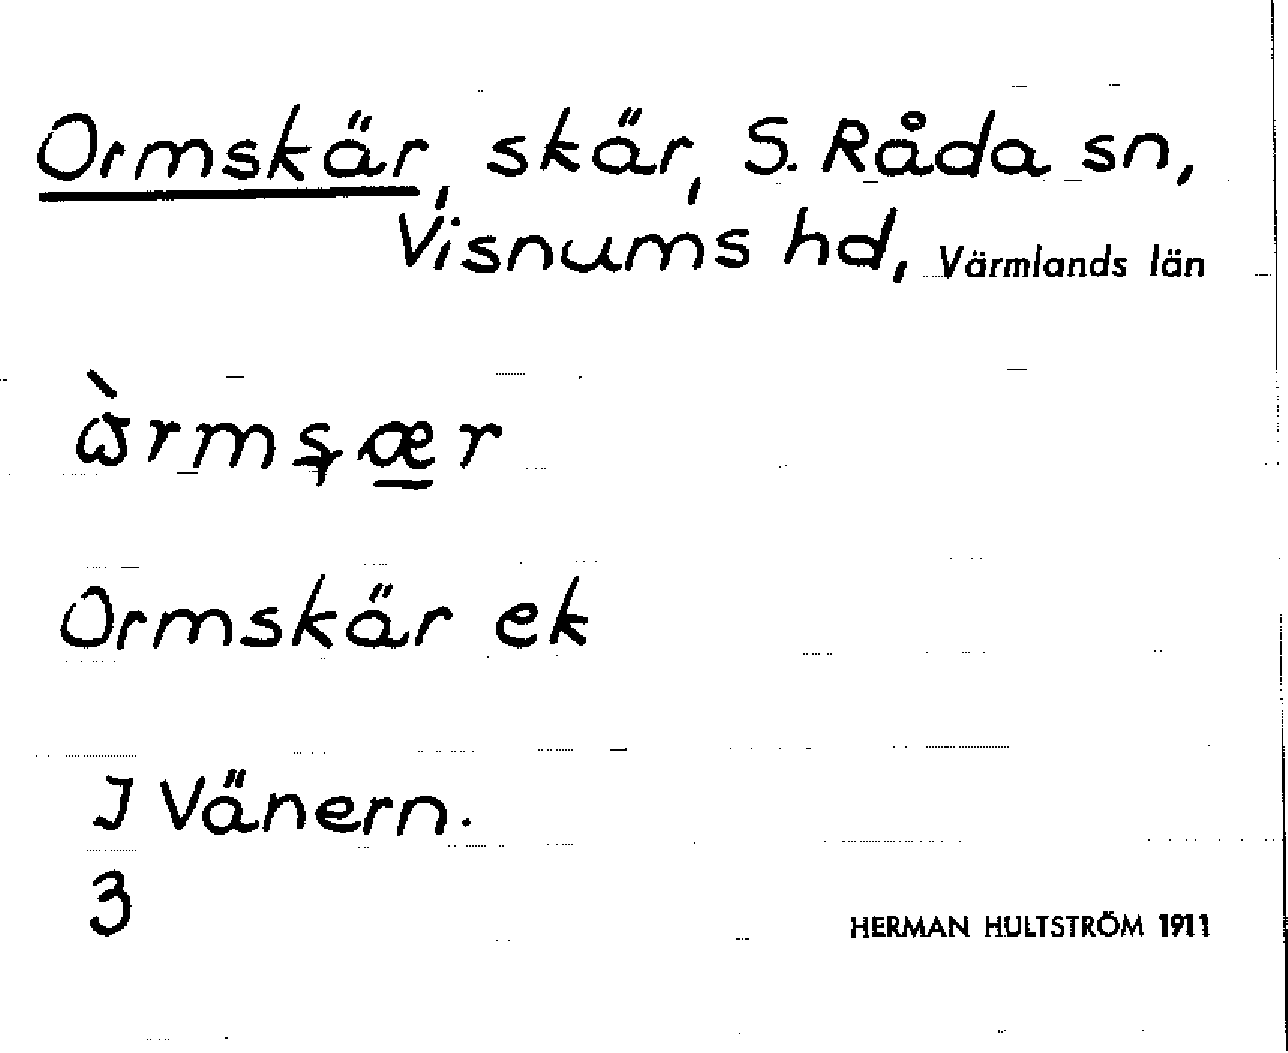 Ormskär, skär, S. Råda sn,
Visnums hd, Värmlands län
Ormskär ek
I Vänern.
3
HERMAN HULTSTRÖM 1911